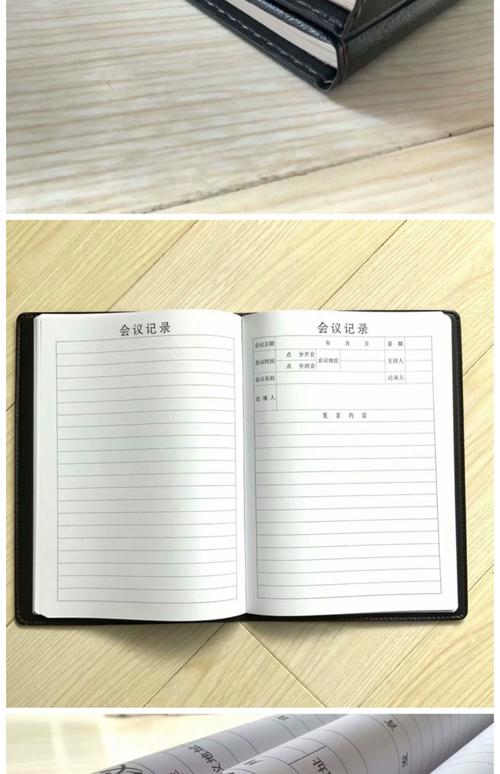 会议记录
会议记录
会议日期 年 月 日 星 期
会议时间 点 分开会 会议地址 主持人
点 分闭会
会议名称 记录人
出席人
发 言 内 容
议地址
言
发
址